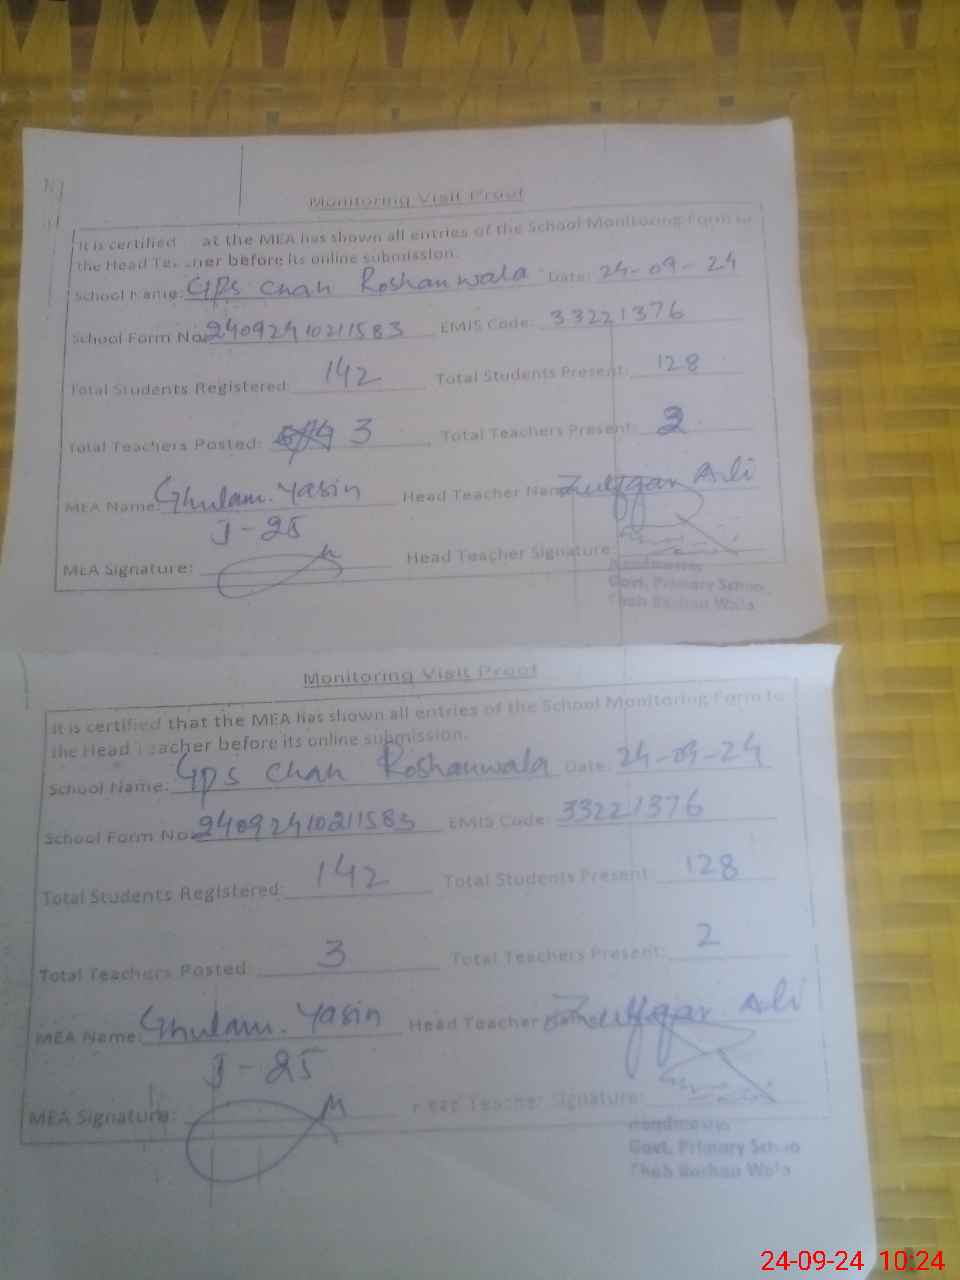 Monitoring Visit Proof
It is certified at the MEA has shown all entries of the School Monitoring Form to
the Head Teacher before its online submission.
School Name: GPS Chah Roshanwala Date: 24-09-24
School Form No. 24092410211583 EMIS Code: 33221376
Total Students Registered: 142 Total Students Present: 128
Total Teachers Posted: 3 Total Teachers Present: 2
MEA Name: Ghulam. Yasin Head Teacher Name Zulfqar Ali
J-25
MEA Signature: Head Teacher Signature:
Headmaster
Govt. Primary School
Chah Roshan Wala
Monitoring Visit Proof
It is certified that the MEA has shown all entries of the School Monitoring Form to
the Head Teacher before its online submission.
School Name: GPS Chah Roshanwala Date: 24-09-24
School Form No. 24092410211583 EMIS Code: 33221376
Total Students Registered: 142 Total Students Present: 128
Total Teachers Posted: 3 Total Teachers Present: 2
MEA Name: Ghulam. Yasin Head Teacher Name Zulfqar Ali
J-25
MEA Signature: Head Teacher Signature:
Headmaster
Govt. Primary School
Chah Roshan Wala
24-09-24 10:24